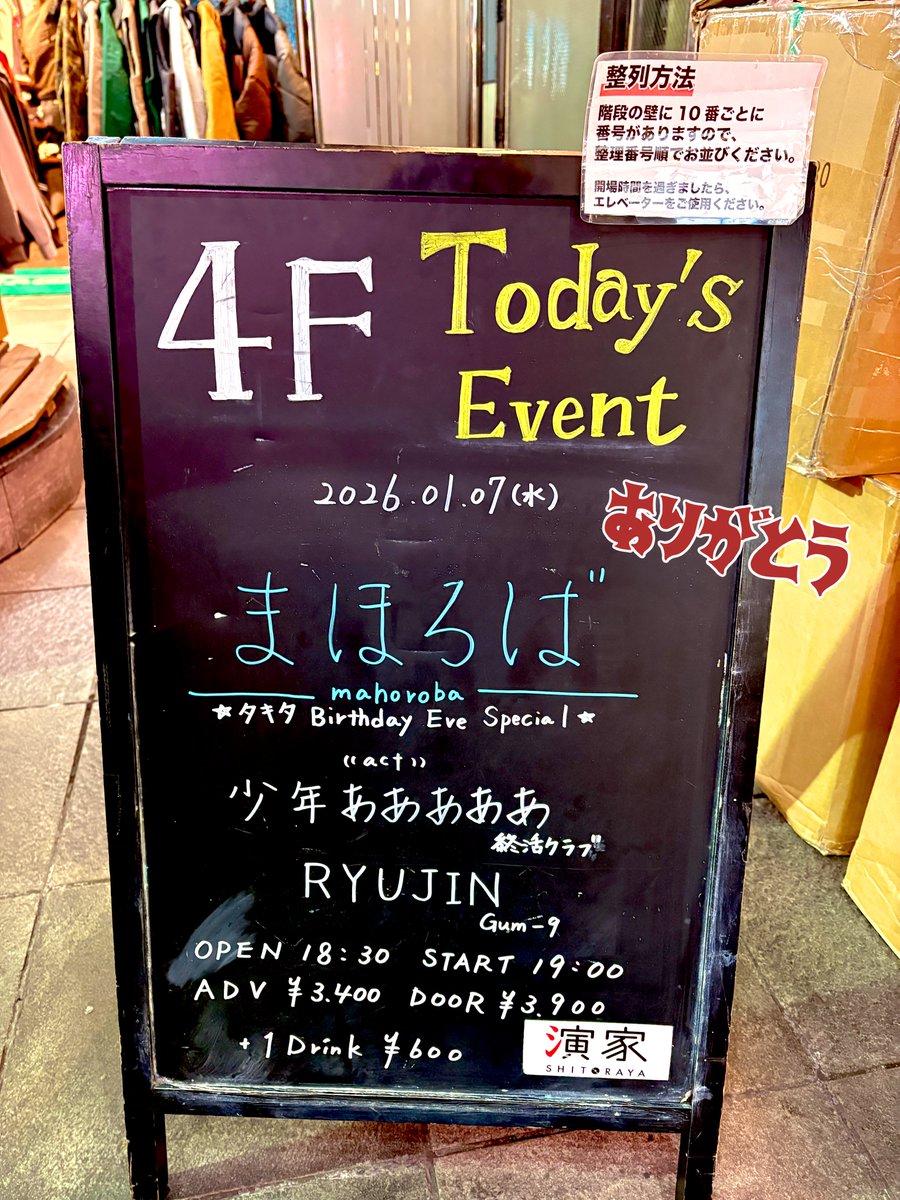 整列方法
階段の壁に10番ごとに
番号がありますので、
整理番号順でお並びください。
開場時間を過ぎましたら、
エレベーターをご使用ください。
4F Today's
Event
2026.01.07(水)
ありがとう
まほろば
mahoroba
☆タキタ Birthday Eve Special☆
"act"
少年あああああ
終活クラブ
RYUJIN
Gum-9
OPEN 18:30 START 19:00
ADV ¥3.400 DOOR ¥3.900
+1Drink ¥600
演家
SHITORAYA